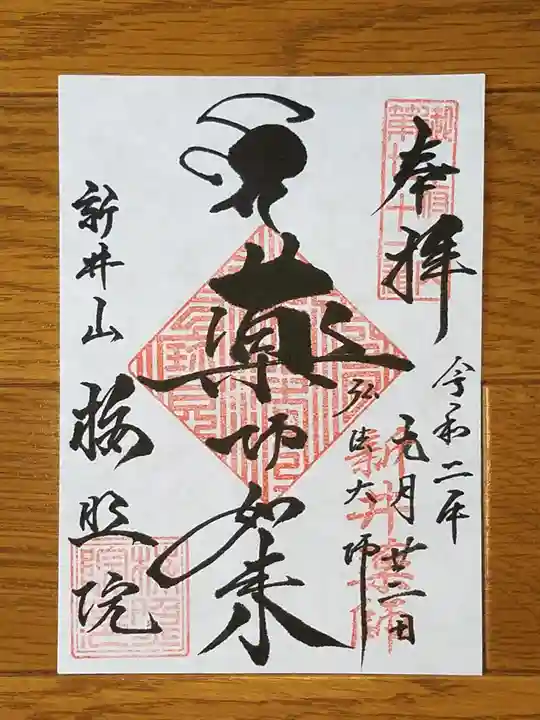 奉拝
令和二年
元月廿二日
薬師如来
弘法大師
新井薬師
新井山
梅照院